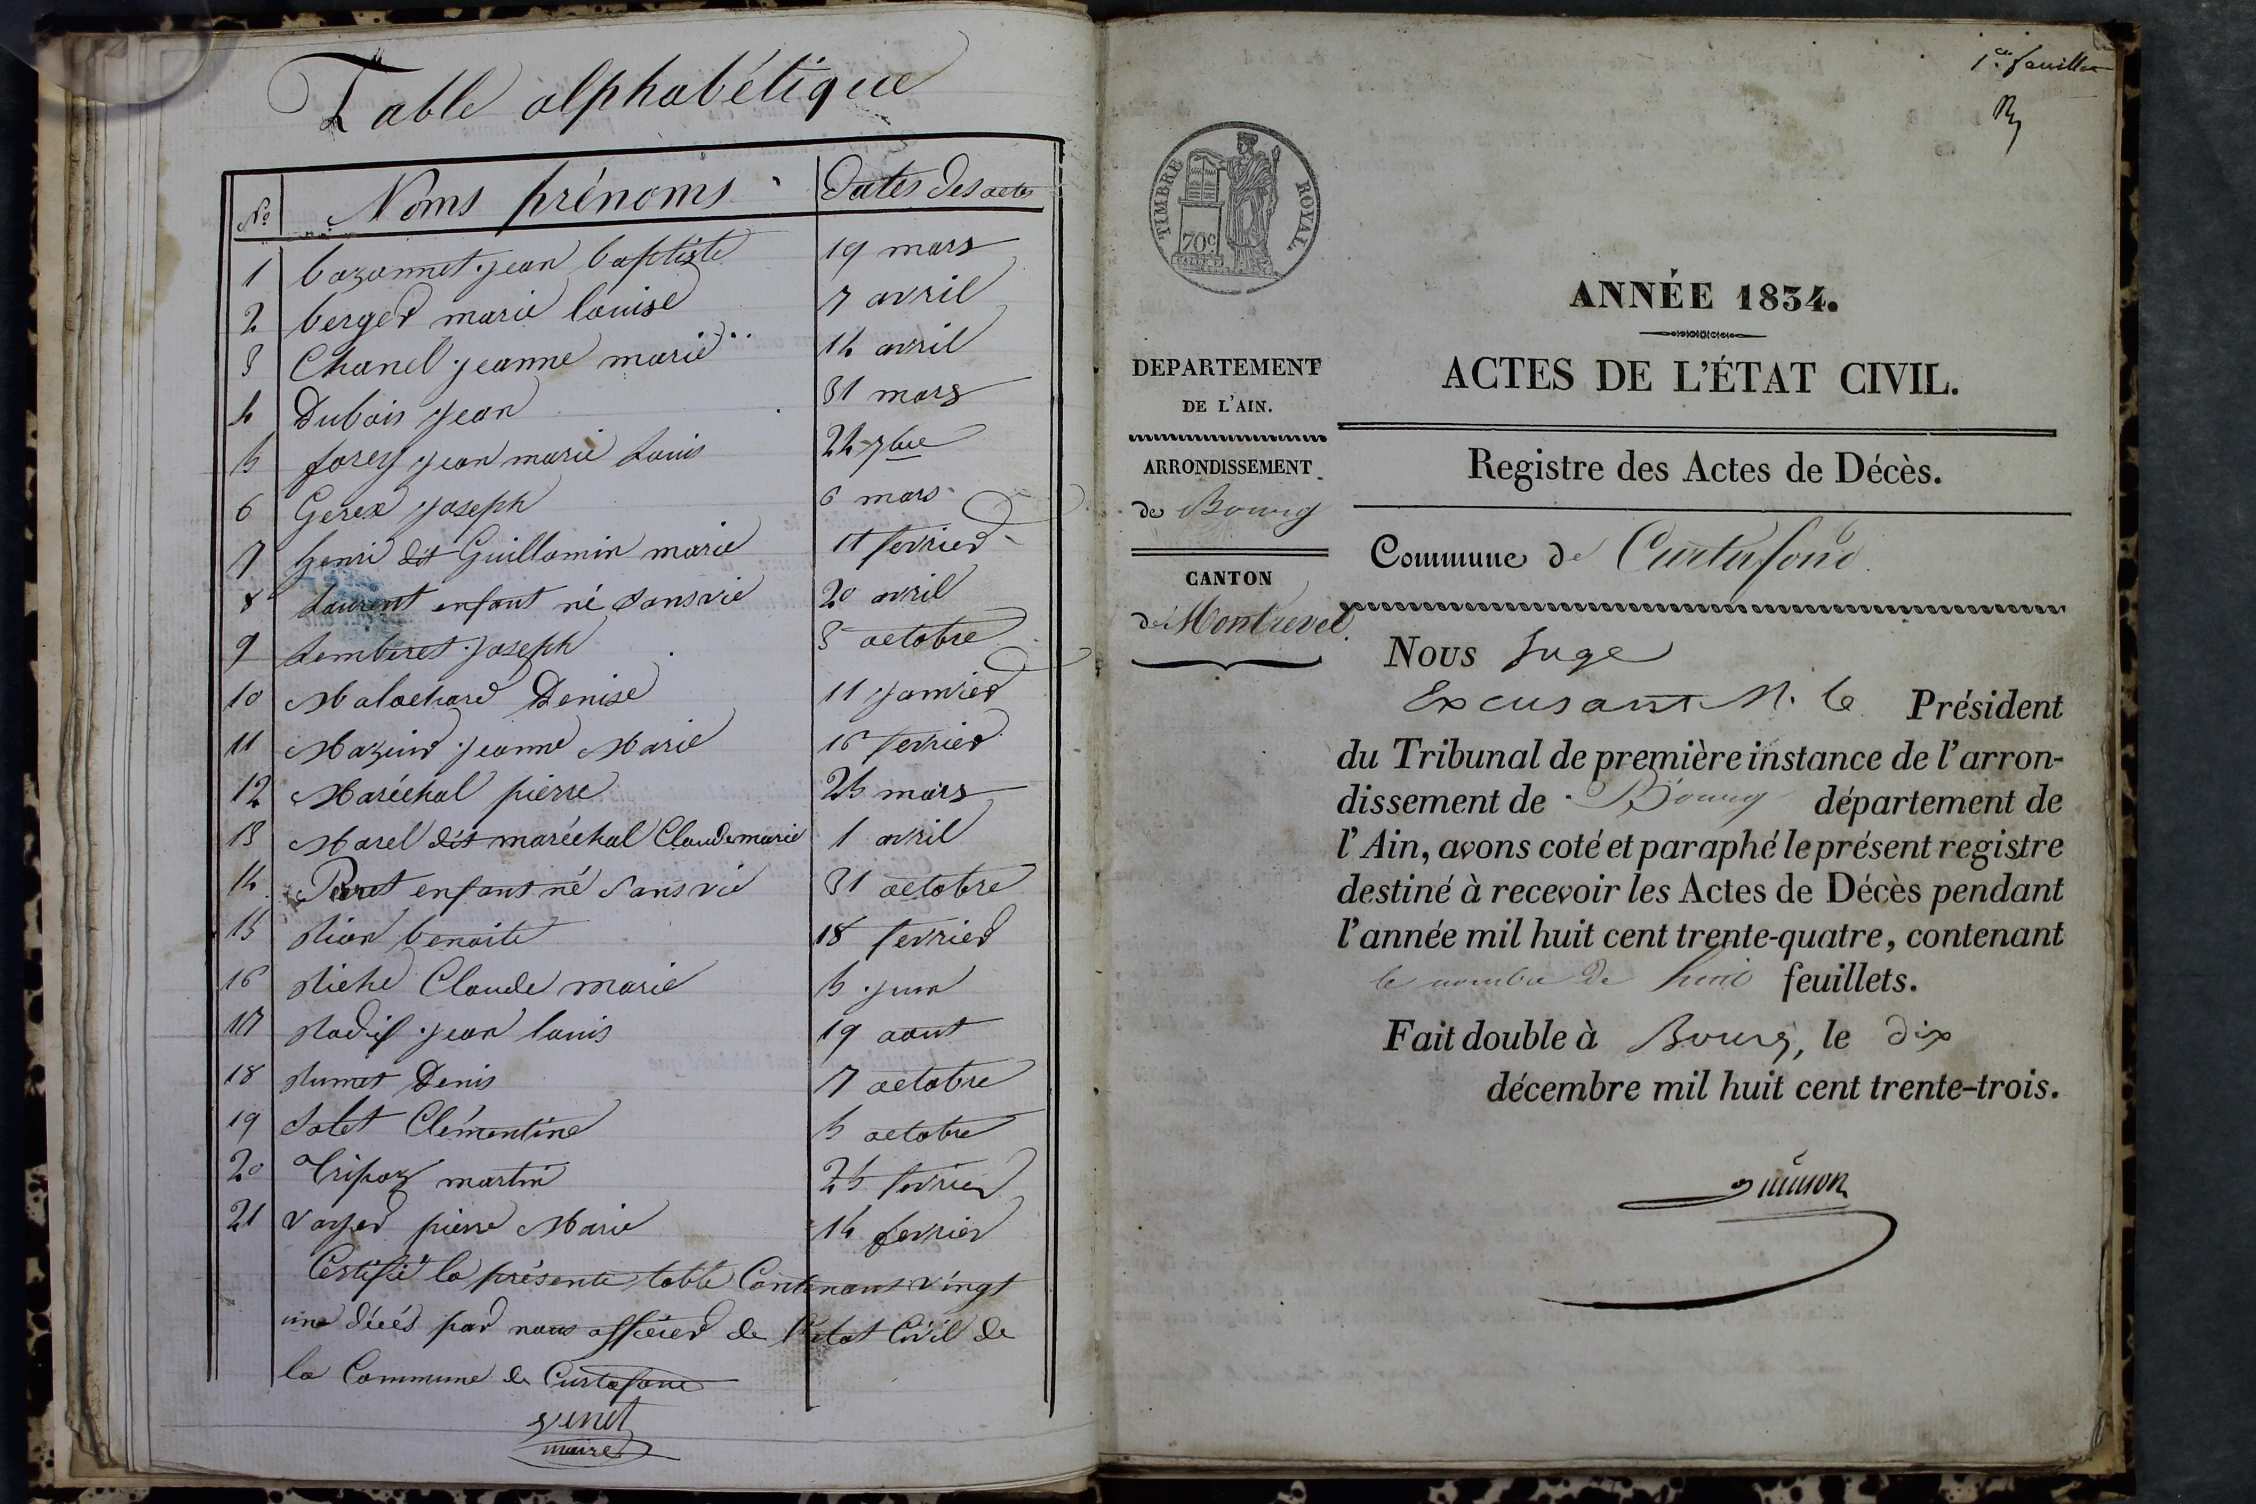 Table alphabétique
No Noms prénoms Dates des actes
1 bazonnet jean baptiste 19 mars
2 berger marie louise 7 avril
3 Chanel jeanne marie 14 avril
4 Dubois jean 31 mars
5 forey jean marie Louis 24 7bre
6 Gerex joseph 6 mars
7 henri dit Guillomin marie 11 fevrier
8 Laurent enfant né sans vie 20 avril
9 Lemberet joseph 3 octobre
10 Malochard Denise 11 janvier
11 Mazuir jeanne Marie 16 fevrier
12 Maréchal pierre 25 mars
13 Morel dit maréchal Claude marie 1 avril
14 Perret enfant né sans vie 31 octobre
15 Rion benoite 18 fevrier
16 Riche Claude marie 5 juin
17 Rodif jean louis 19 aout
18 Rumet Denis 7 octobre
19 Solet Clémentine 5 octobre
20 Tripoz martin 25 fevrier
21 voyer pierre Marie 14 fevrier
Certifié la présente table Contenant vingt
une décés par nous officier de l'etat Civil de
la Commune de Curtafond
venet
maire
1er feuillet
TIMBRE ROYAL
70c
ANNÉE 1834.
DEPARTEMENT
DE L'AIN.
ACTES DE L'ÉTAT CIVIL.
ARRONDISSEMENT
de Bourg
Registre des Actes de Décès.
CANTON
de Montrevel.
Commune de Curtafond
Nous Juge
Excusant M. le Président
du Tribunal de première instance de l'arron-
dissement de Bourg département de
l'Ain, avons coté et paraphé le présent registre
destiné à recevoir les Actes de Décès pendant
l'année mil huit cent trente-quatre, contenant
le nombre de huit feuillets.
Fait double à Bourg, le dix
décembre mil huit cent trente-trois.